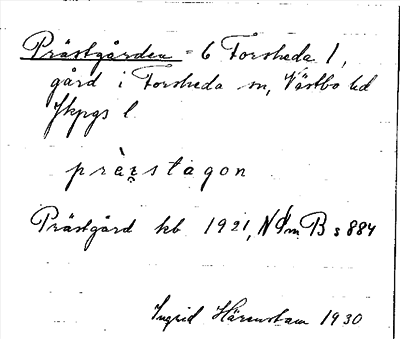 Prästgården = 6 Forsheda 1,
gård i Forsheda sn, Västbo hd
Jkpgs l
prä̀stagon
Prästgård kb 1921, N Sm B s 884
Ingrid Härenstam 1930